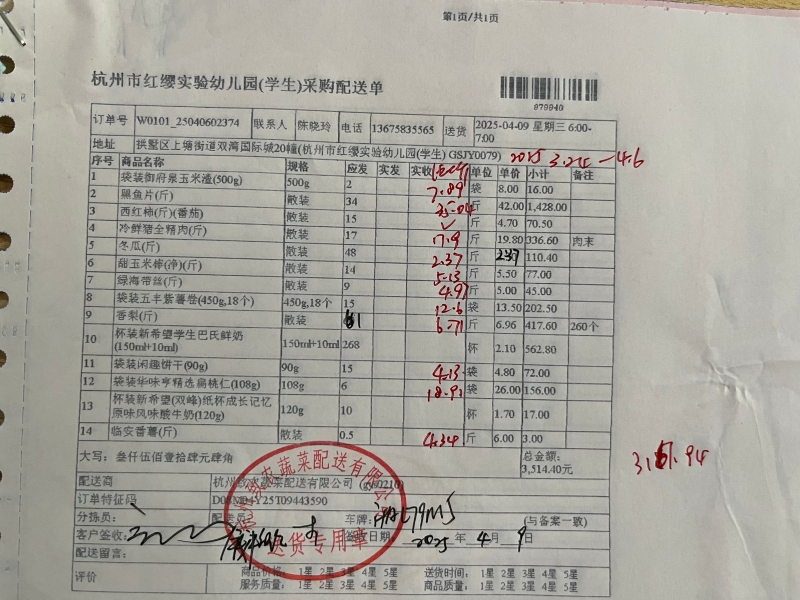 第1页/共1页
杭州市红缨实验幼儿园(学生)采购配送单
079940
订单号 W0101_25040602374 联系人 陈晓玲 电话 13675835565 送货 2025-04-09 星期三 6:00-7:00
地址 拱墅区上塘街道双湾国际城20幢(杭州市红缨实验幼儿园(学生) GSJY0079) 2025 3.24-4.6
序号 商品名称 规格 应发 实发 实收 单位 单价 小计 备注
1 袋装御府泉玉米渣(500g) 500g 2 7.89 袋 8.00 16.00
2 黑鱼片(斤) 散装 34 35.04 斤 42.00 1,428.00
3 西红柿(斤)(番茄) 散装 15 ✓ 斤 4.70 70.50
4 冷鲜猪全精肉(斤) 散装 17 17.9 斤 19.80 336.60 肉末
5 冬瓜(斤) 散装 48 2.37 斤 110.40
6 甜玉米棒(净)(斤) 散装 14 5.13 斤 5.50 77.00
7 绿海带丝(斤) 散装 9 4.97 斤 5.00 45.00
8 袋装五丰紫薯卷(450g,18个) 450g,18个 15 12.6 袋 13.50 202.50
9 香梨(斤) 散装 61 6.71 斤 6.96 417.60 260个
10 杯装新希望学生巴氏鲜奶(150ml+10ml) 150ml+10ml 268 杯 2.10 562.80
11 袋装闲趣饼干(90g) 90g 15 4.13 袋 4.80 72.00
12 袋装华味亨精选扁桃仁(108g) 108g 6 18.92 袋 26.00 156.00
13 杯装新希望(双峰)纸杯成长记忆原味风味酸牛奶(120g) 120g 10 杯 1.70 17.00
14 临安番薯(斤) 散装 0.5 4.34 斤 6.00 3.00
大写：叁仟伍佰壹拾肆元肆角 总金额：3,514.40元
配送商 杭州 农蔬菜配送有限公司
订单特征码
分拣员： 配送员 车牌： (与备案一致)
客户签收： 签收日期： 2025 年 4 月 9 日
配送留言：
评价 商品价格： 1星 2星 3星 4星 5星 送货时间： 1星 2星 3星 4星 5星
服务质量： 1星 2星 3星 4星 5星 商品质量： 1星 2星 3星 4星 5星
农蔬菜配送有限公司
送货专用章